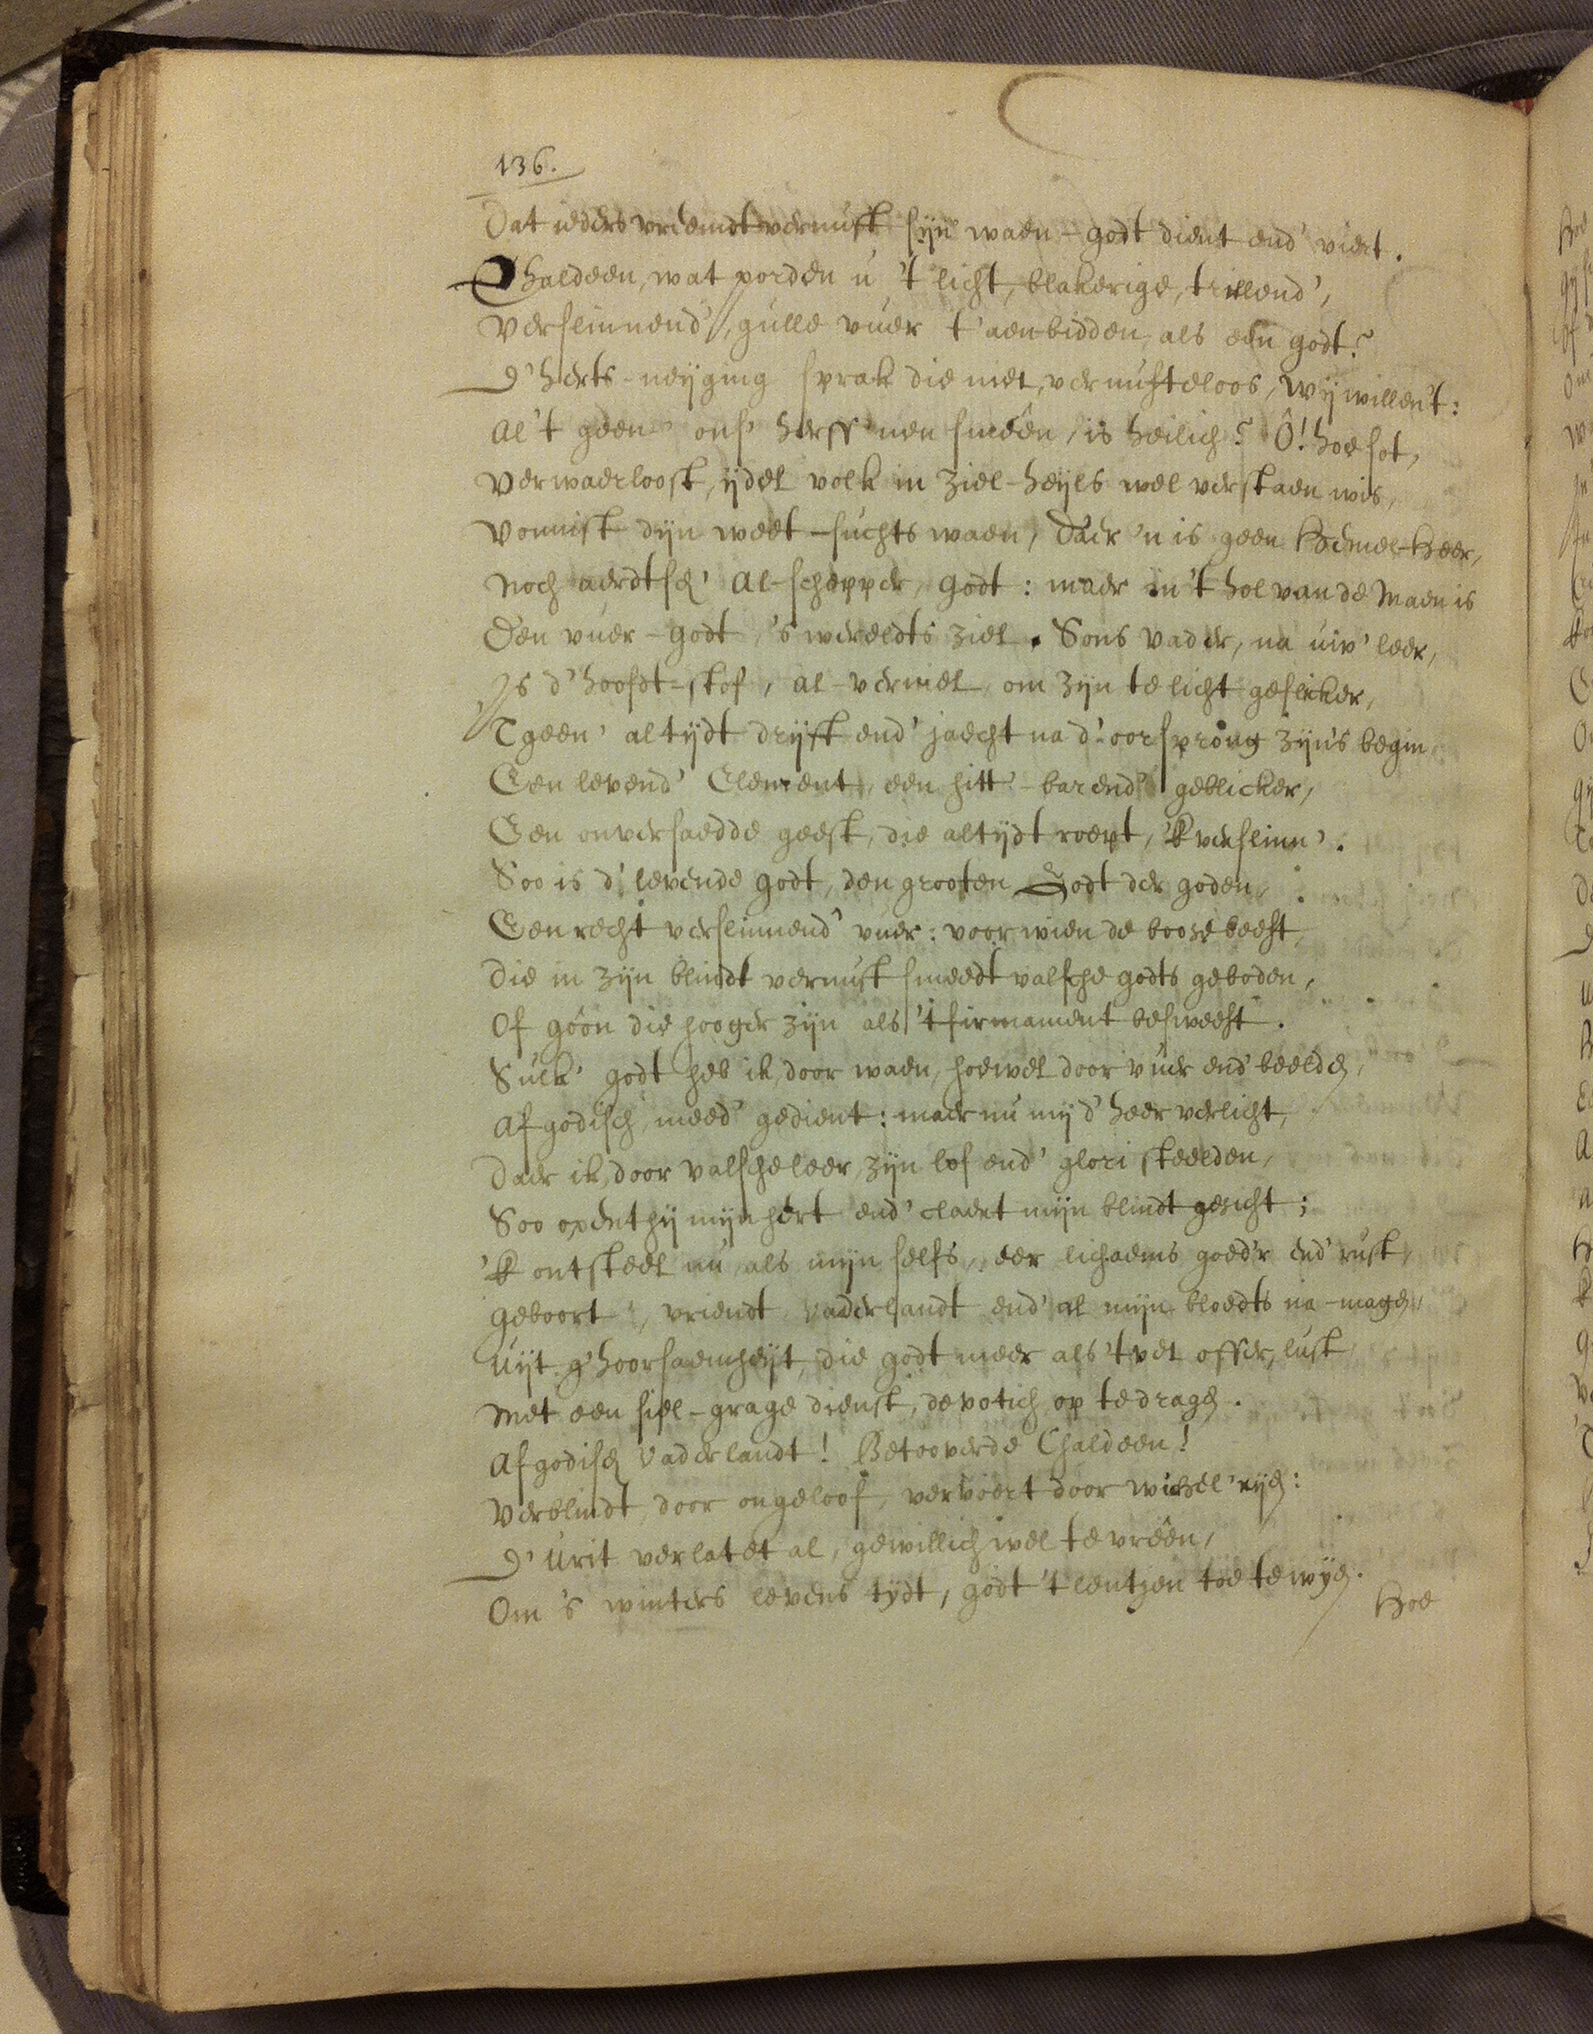 136.
Dat ieders vreemdt vernuft sijn waen-godt dient end' viert.
Chaldeen, wat porden u 't licht, blakerige, trillend',
Verslinnend', gulle vuer t' aenbidden, als een godt?
D'herts-neyging sprak die niet, vernufteloos, wij willen't:
Al 't geen' ons' herss'nen smeên, is heilich? Ô! hoe sot,
Verwaerloost, ijdel volk in ziel-heijls wel verstaen wis,
Vonnist dijn weet-suchts waen, Daer 'n is geen Hemel-heer,
Noch aerdtsch' Al-schepper, Godt: maer in 't hol van de Maen is
Een vuer-Godt, 's wereldts ziel. Sons vader, na uw' leer,
Is d'hoofdt-stof, al-verniel, om zijn te licht geflicker,
'T geen' altijdt drijft end' jaecht na d'oorsprong zijn's begin
Een levend' Element, een hitt'-barend' geblicker,
Een onversaedde geest, die altijdt roept, 'k verslinn'.
Soo is d' levende godt, den grooten Godt der goden,
Een recht verslinnend' vuer: voor wien de booze beeft,
Die in zijn blindt vernuft smeedt valsche godts geboden,
Of goôn die hooger zijn als 't firmament besweeft.
Sulk' godt heb ik, door waen, hoewel door vuer end' beelden,
Afgodisch, meed' gedient: maer nu mij d'heer verlicht,
Daer ik, door valsche leer, zijn lof end' glori steelden,
Soo opent hij mijn hert end' claert mijn blindt gesicht;
'K ontsteel nu, als mijn selfs, eer lichaems goed'r end' rust,
Geboort', vriendt, vaderlandt end' al mijn bloedts na-magen,
Uijt g'hoorsaemheijt, die godt meer als 't vet offer, lust
Met een siel-grage dienst, devotich op te dragen.
Afgodisch Vaderlandt! Betooverde Chaldeen!
Verblindt, door ongeloof, vervoert door wichel'rijen:
D'Urit verlatet al, gewillich wel te vreên,
Om 's winters levens tijdt, godt 't lentjen toe te wijen.
Hoe